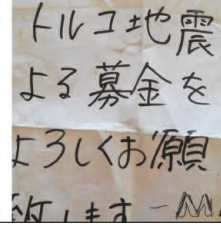 トルコ地震
よる募金を
よろしくお願
致します－M